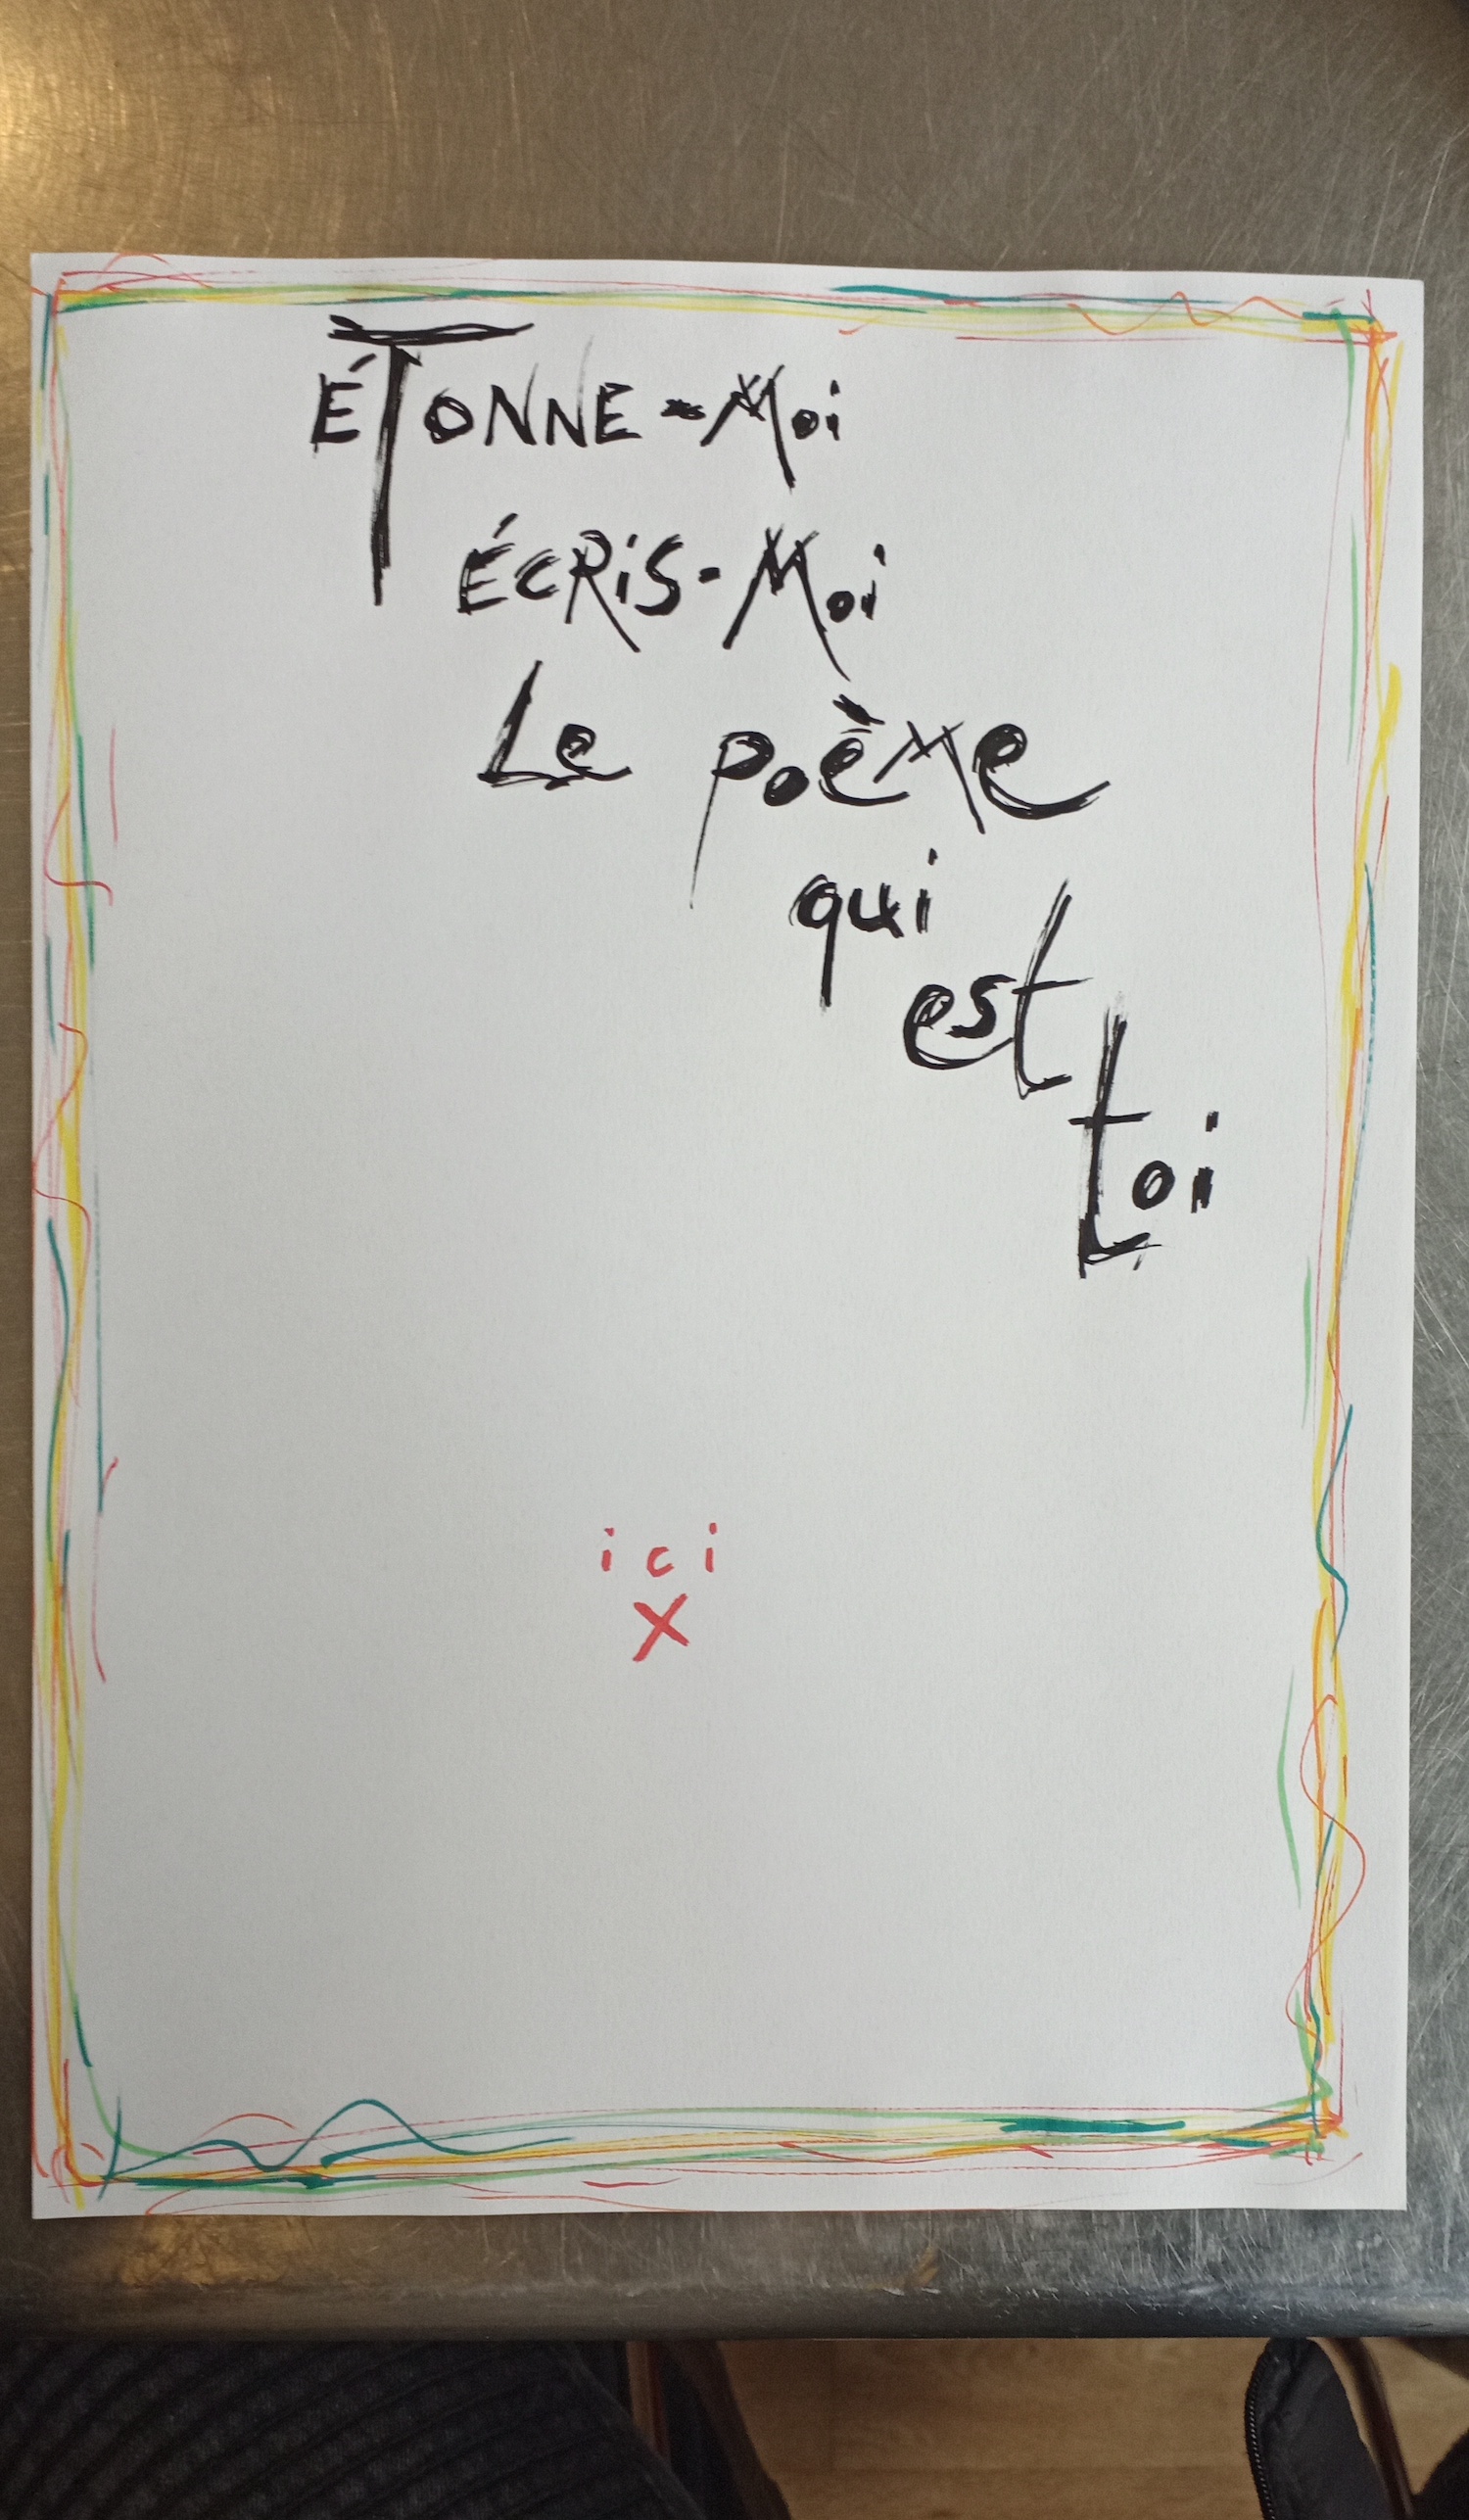 ÉTONNE-Moi
ÉCRiS-Moi
Le poème
qui
est
toi
ici
X